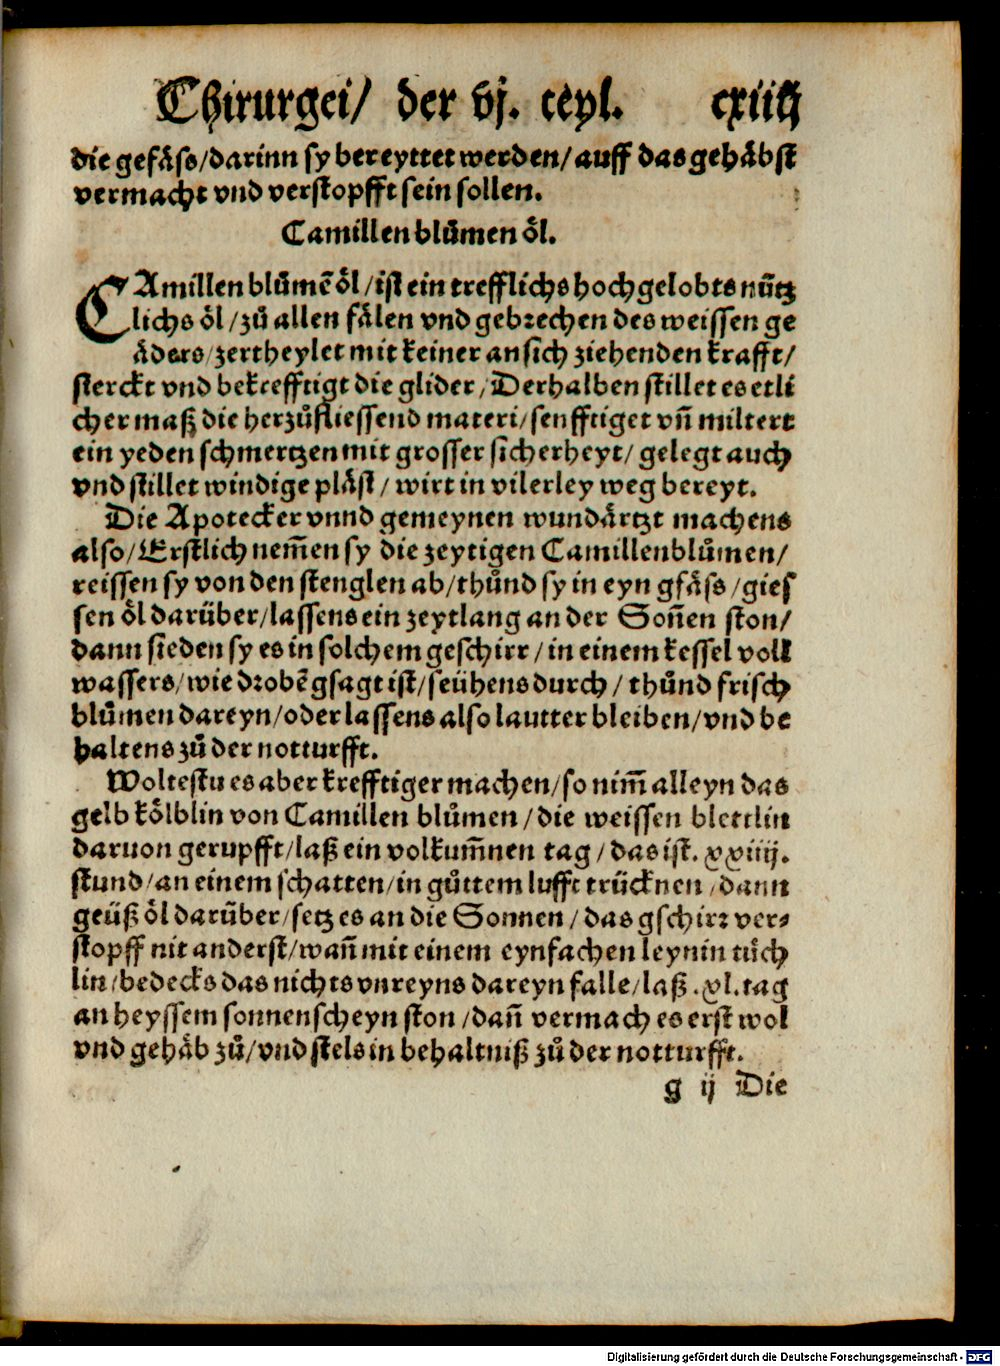 Chirurgei/ der vj. teyl. cxiiij
die gefäſs/darinn ſy bereyttet werden/auff das gehäbſt
vermacht vnd verſtopfft ſein ſollen.
Camillen blůmen öl.
CAmillen blůmẽ öl/iſt ein trefflichs hochgelobts nütz
lichs öl/zů allen fälen vnd gebrechen des weiſſen ge
äders/zertheylet mit keiner an ſich ziehenden krafft/
ſterckt vnd bekrefftigt die glider/Derhalben ſtillet es etli
cher maß die herzůflieſſend materi/ſenfftiget vñ miltert
ein yeden ſchmertzen mit groſſer ſicherheyt/gelegt auch
vnd ſtillet windige pläſt/wirt in vilerley weg bereyt.
Die Apotecker vnnd gemeynen wundärtzt machens
alſo/Erſtlich nem̃en ſy die zeytigen Camillenblůmen/
reiſſen ſy von den ſtenglen ab/thůnd ſy in eyn gfäſs/gieſ
ſen öl darüber/laſſens ein zeytlang an der Soñen ſton/
dann ſieden ſy es in ſolchem geſchirr/in einem keſſel voll
waſſers/wie drobẽ gſagt iſt/ſeühens durch/thůnd friſch
blůmen dareyn/oder laſſens alſo lautter bleiben/vnd be
haltens zů der notturfft.
Wolteſtu es aber krefftiger machen/ſo nim̃ alleyn das
gelb kölblin von Camillen blůmen/die weiſſen blettlin
daruon gerupfft/laß ein volkum̃nen tag/das iſt.xxiiij.
ſtund/an einem ſchatten/in gůttem lufft trücknen/dann
geüß öl darüber/ſetz es an die Sonnen/das gſchirr ver⸗
ſtopff nit anderſt/wañ mit einem eynfachen leynin tüch
lin/bedecks das nichts vnreyns dareyn falle/laß.xl.tag
an heyſſem ſonnenſcheyn ſton/dañ vermach es erſt wol
vnd gehäb zů/vnd ſtels in behaltniß zů der notturfft.
g ij Die
Digitalisierung gefördert durch die Deutsche Forschungsgemeinschaft - DFG